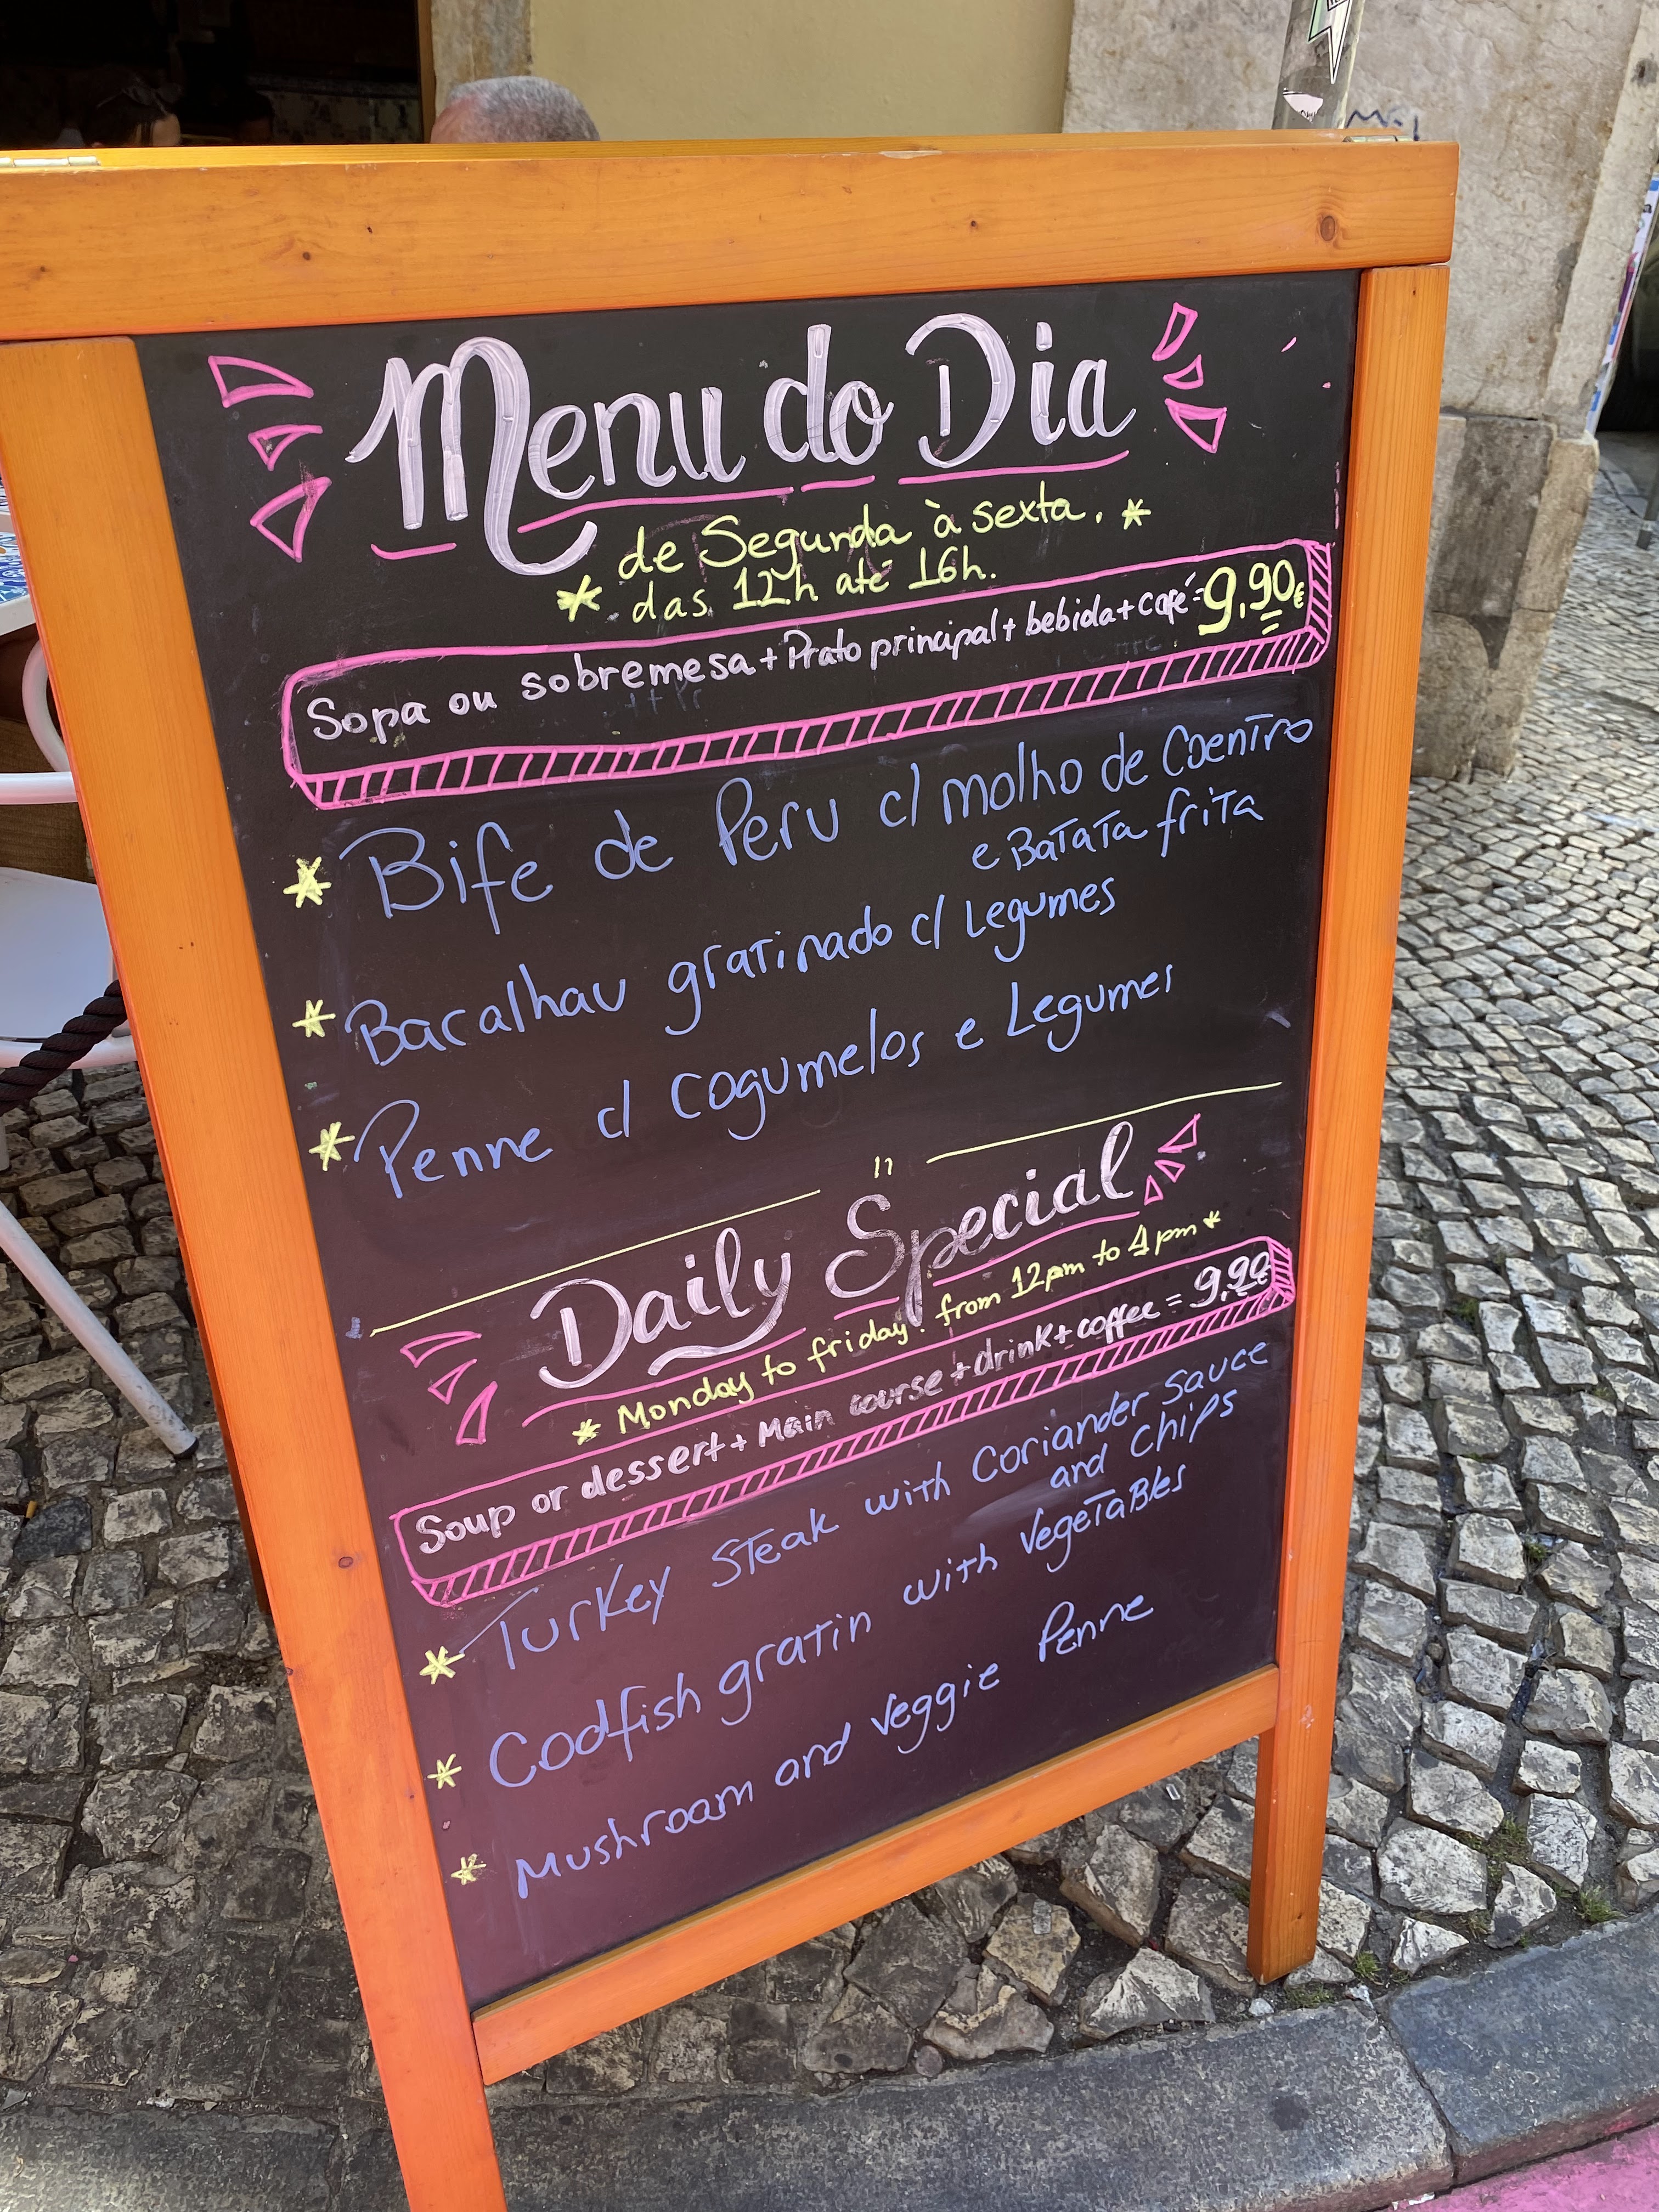 Menu do Dia
de Segunda à sexta. *
* das 12h até 16h.
Sopa ou sobremesa + Prato principal + bebida + café = 9,90€
* Bife de Peru c/ molho de Coentro
e Batata frita
* Bacalhau gratinado c/ Legumes
* Penne c/ cogumelos e Legumes
Daily Special
* Monday to friday. from 12pm to 4pm *
Soup or dessert + Main course + drink + coffee = 9,90€
* Turkey Steak with Coriander Sauce
and Chips
* Codfish gratin with Vegetables
* Mushroom and Veggie Penne